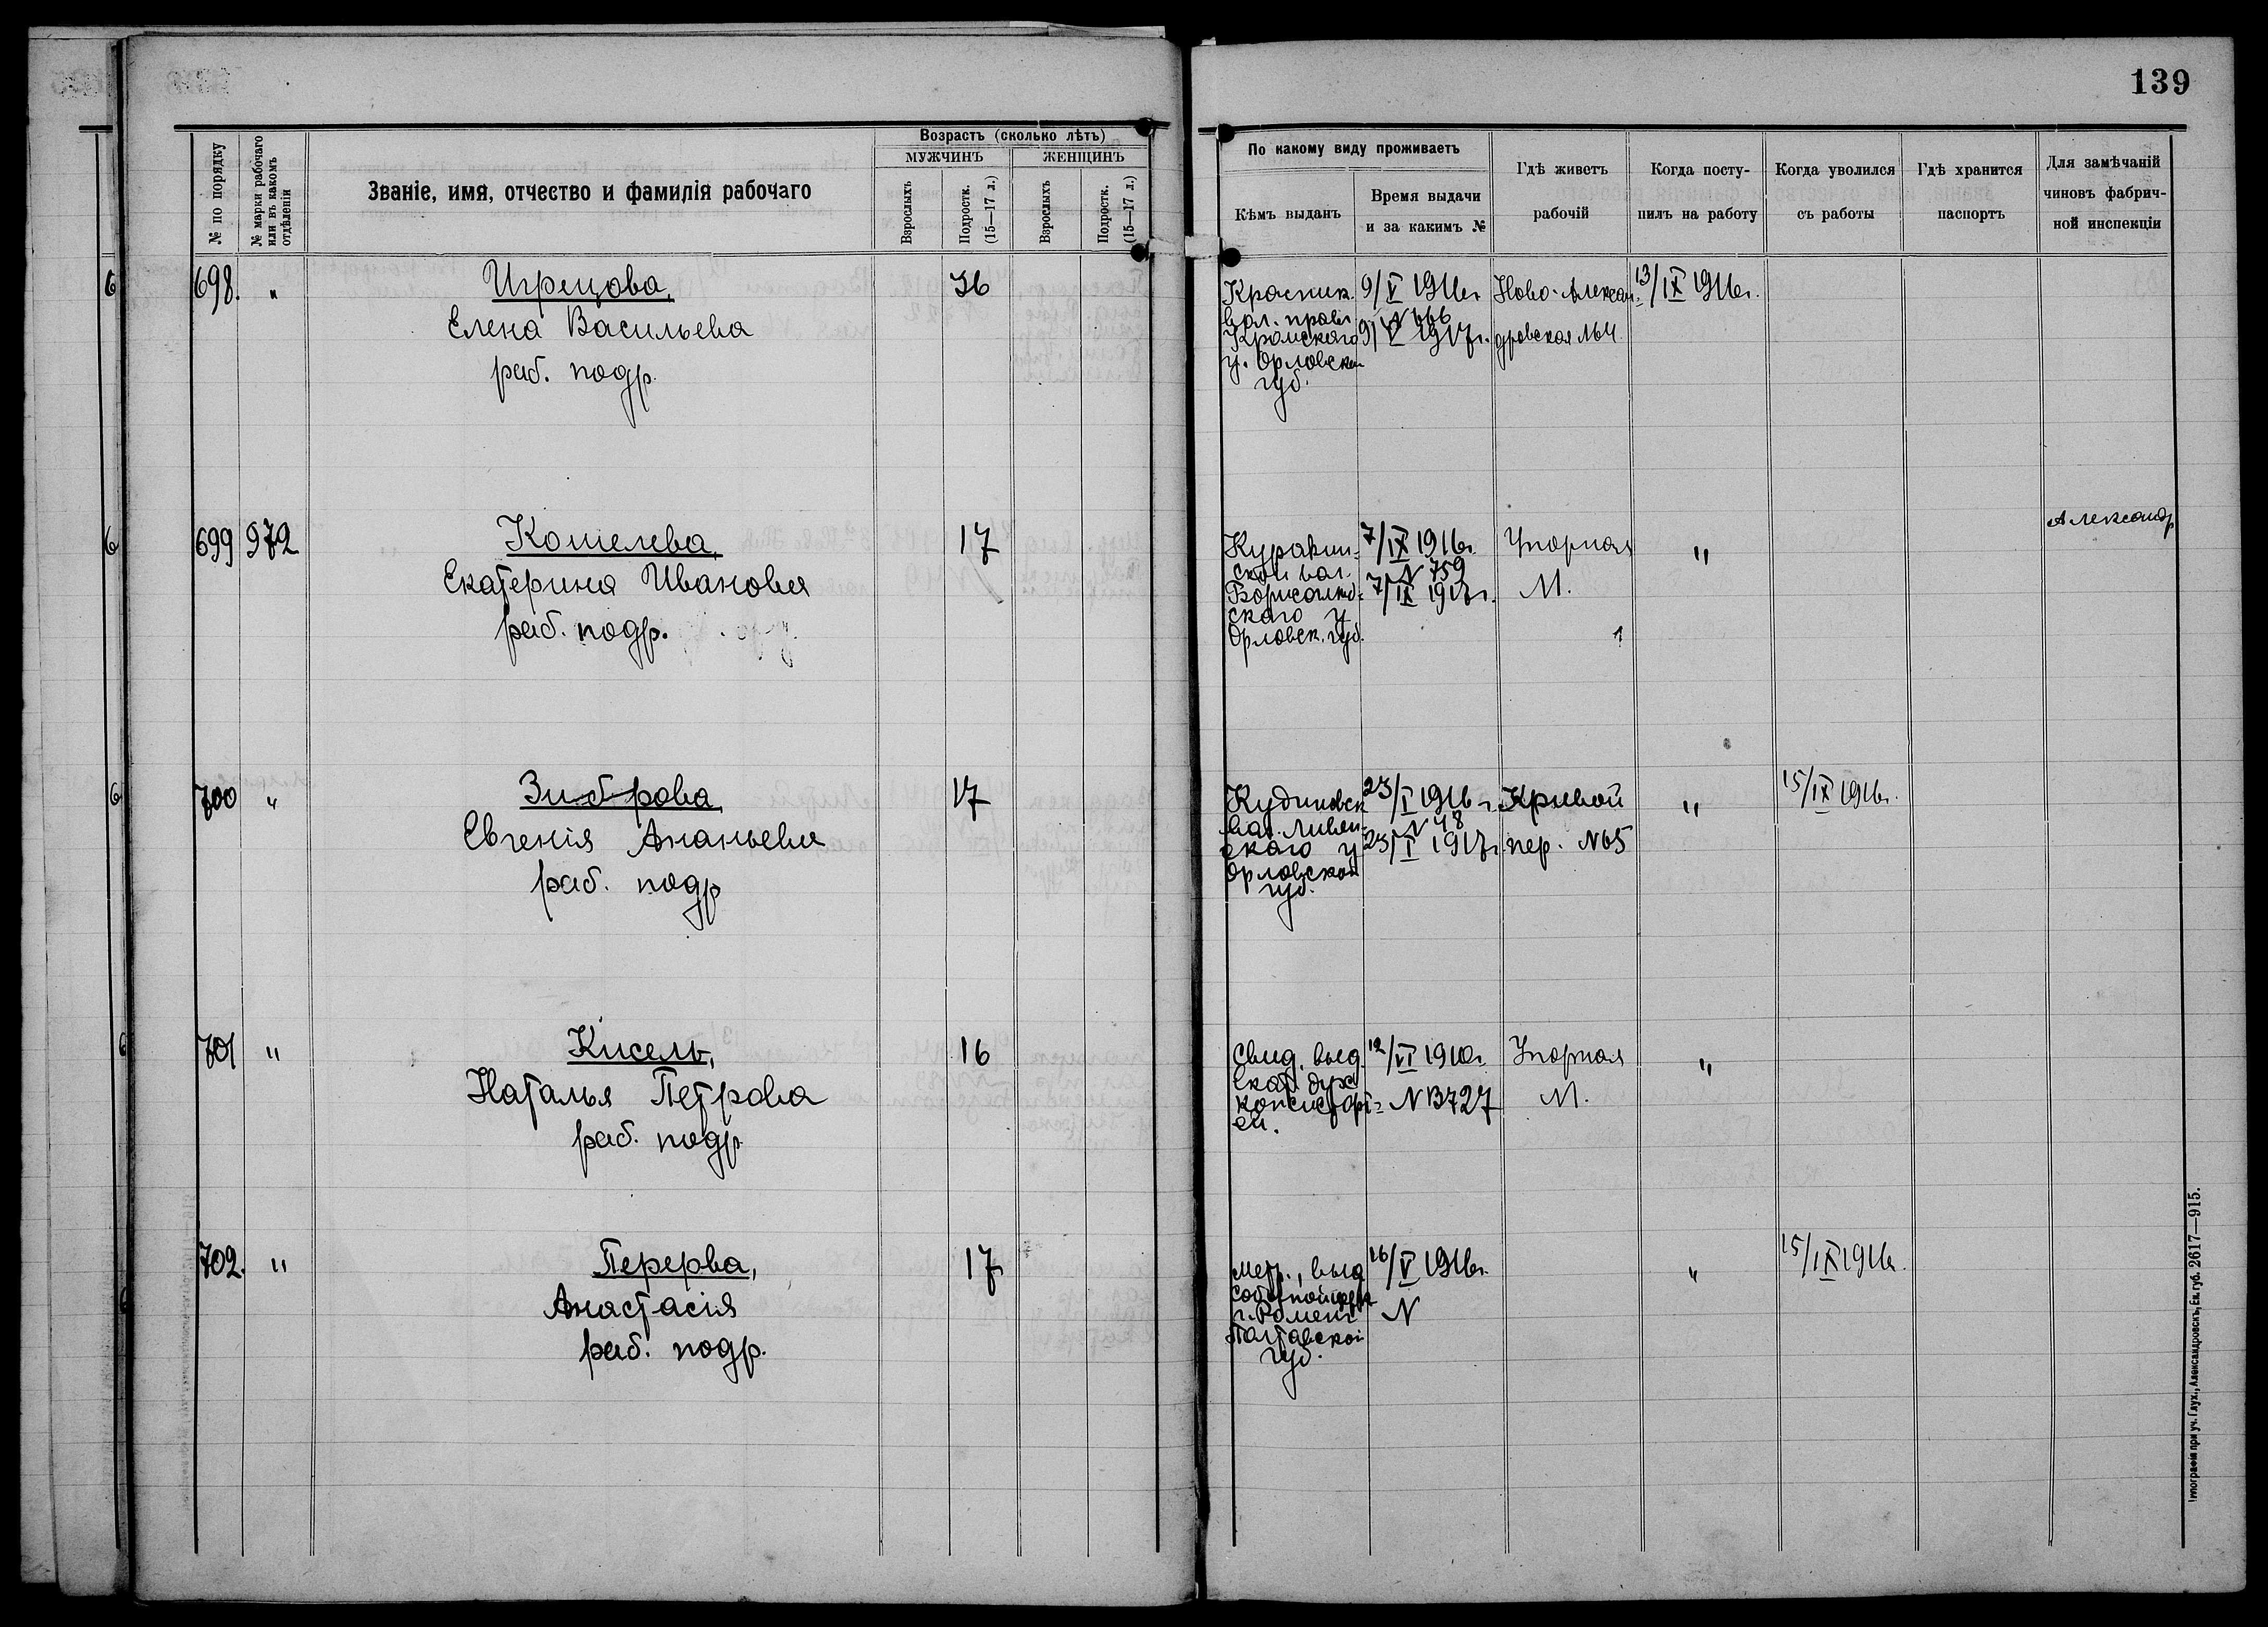 139
Возрастъ (сколько лѣтъ)
МУЖЧИНЪ
ЖЕНЩИНЪ
№ по порядку
№ марки рабочаго
или въ какомъ
отдѣленіи
Званіе, имя, отчество и фамилія рабочаго
Взрослыхъ
Подростк.
(15—17 л.)
Взрослыхъ
Подростк.
(15—17 л.)
По какому виду проживаетъ
Кѣмъ выданъ
Время выдачи
и за какимъ №
Гдѣ живетъ
рабочій
Когда посту-
пилъ на работу
Когда уволился
съ работы
Гдѣ хранится
паспортъ
Для замѣчаній
чиновъ фабрич-
ной инспекціи
698. "
Игрецова,
Елена Васильева
раб. подр.
Красник.
вол. правл.
Кромскаго
у. Орловской
губ.
9/V 1916г.
N 666
9/V 1917г.
Ново-Алексан-
дровская №4.
13/IX 1916г.
699 972
Кошелева,
Екатерина Иванова
раб. подр.
17
Куракин-
ской вол.
скаго у.
Орловск. губ.
7/IX 1916г.
N 759
7/IX 1917г.
Упорная
М.
"
Александр
700 "
Зиброва
Евгенія Ананьева
раб. подр
17
Кудиновск
вол. Ливен-
скаго у
Орловской
губ.
23/I 1916г.
N 48
23/I 1917г.
Кривой
пер. N65
"
15/IX 1916г.
701 "
Кисель,
Наталья Петрова
раб. подр.
16
Свид. выд.
Екат. дух.
консисторі-
ей.
12/VI 1910г.
N 13727
Упорная
М.
"
702. "
Перерва,
Анастасія
раб. подр.
17
Метр., выд
г. Ромен
Полтавской
губ.
16/V 1916г.
N
"
15/IX 1916г.
Типографія при уч. Глух., Александровскъ, Ек. губ. 2617—915.